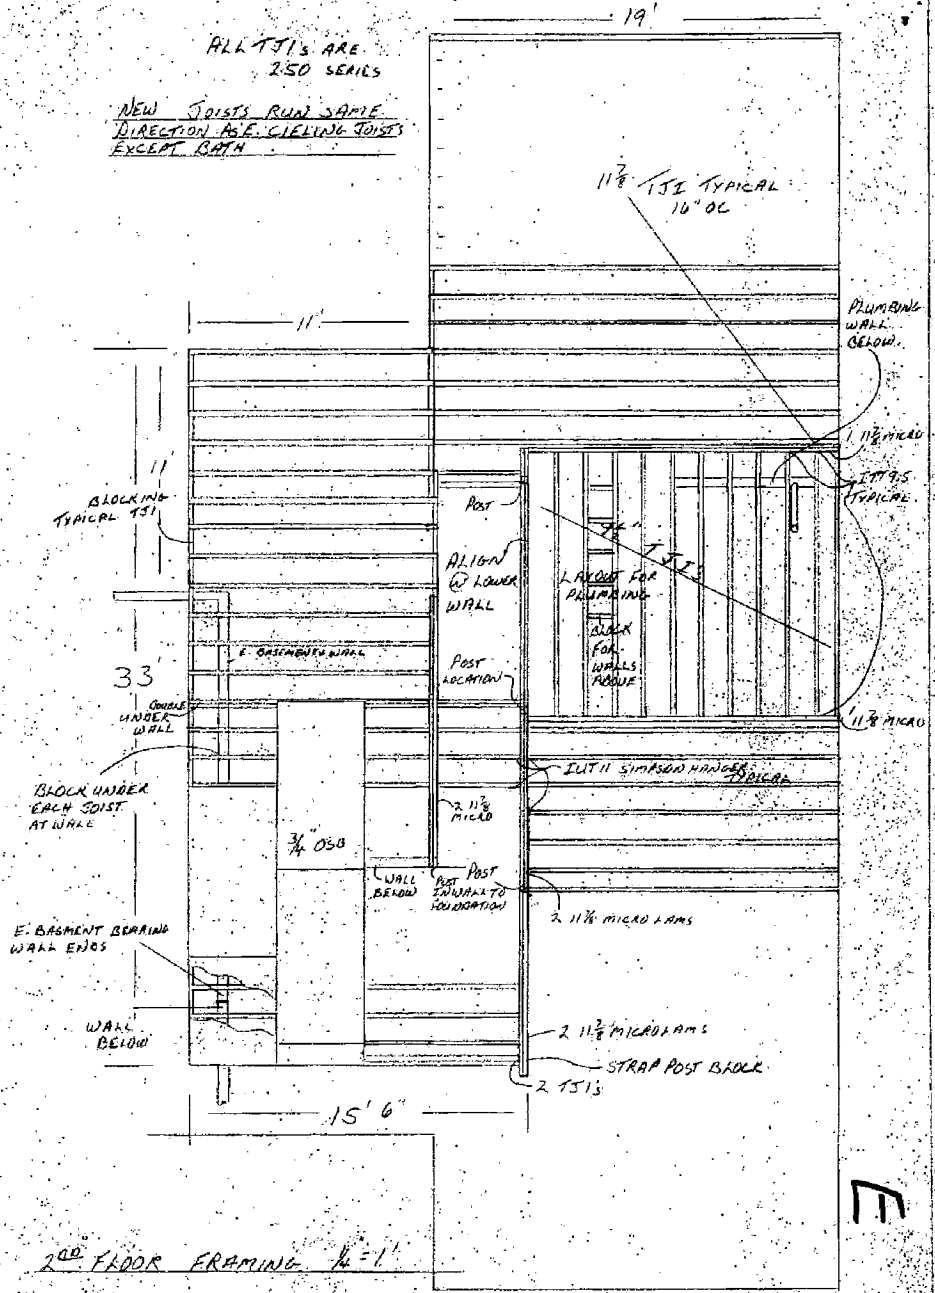 19'
ALL TJI's ARE
250 SERIES
NEW JOISTS RUN SAME
DIRECTION AS E. CIELING JOISTS
EXCEPT BATH
11 7/8 TJI TYPICAL
16" OC
PLUMBING
WALL
BELOW.
11'
1 11 7/8 MICRO
ITT 9.5
TYPICAL
11'
BLOCKING
TYPICAL TJI
POST
9 1/2" TJI's
ALIGN
W LOWER
WALL
LAYOUT FOR
PLUMBING
BLOCK
FOR
WALLS
ABOVE
E. BASEMENT WALL
POST
LOCATION
33'
DOUBLE
UNDER
WALL
1 11 7/8 MICRO
IUT 11 SIMPSON HANGER
TYPICAL
BLOCK UNDER
EACH JOIST
AT WALL
2 11 7/8
MICRO
3/4" OSB
WALL
BELOW
POST
IN WALL TO
FOUNDATION
POST
2 11 7/8 MICRO LAMS
E. BASMENT BEARING
WALL ENDS
WALL
BELOW
2 11 7/8 MICROLAMS
STRAP POST BLOCK
2 TJI's
15' 6"
E
2ND FLOOR FRAMING 1/4 = 1'